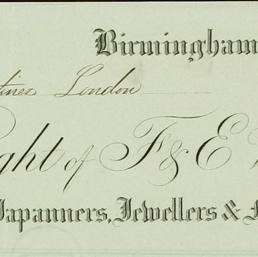 Birmingham
London
of F & E
Japanners, Jewellers &